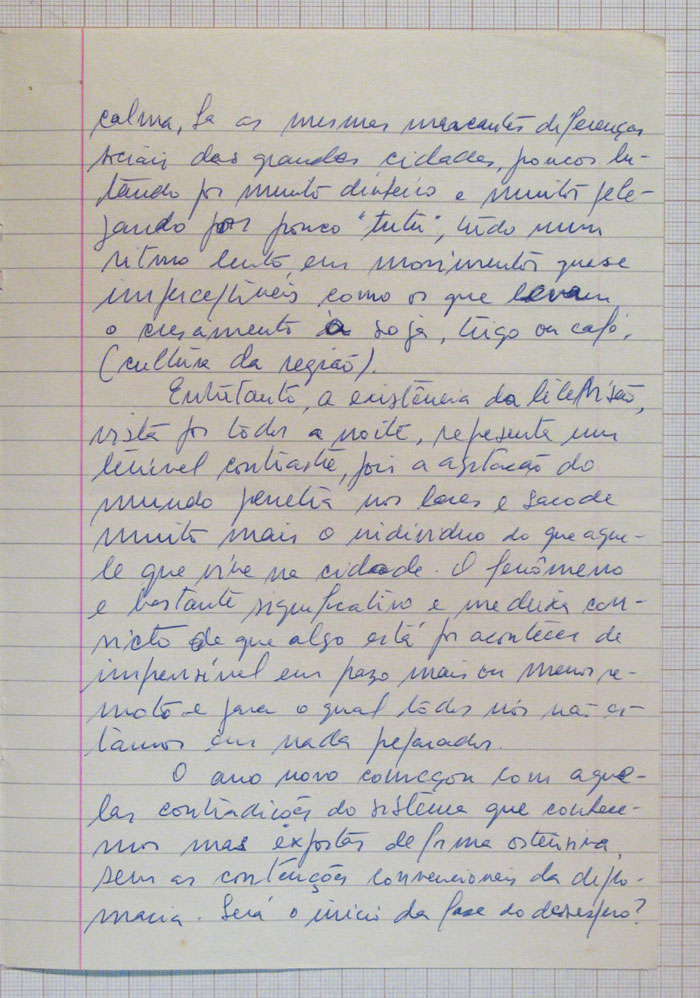 calma, há as mesmas marcantes diferenças
sociais das grandes cidades, poucos lu-
tando por muito dinheiro e muitos pele-
jando por pouco "tutu", tudo num
ritmo lento, em movimentos quase
imperceptíveis como os que levam
o crescimento à soja, trigo ou café.
(cultura da região).
Entretanto, a existência da televisão,
vista por todos a noite, representa um
terrível contraste, pois a agitação do
mundo penetra nos lares e sacode
muito mais o indivíduo do que aque-
le que vive na cidade. O fenômeno
e bastante significativo e me deixa con-
victo de que algo está por acontecer de
impensável em prazo mais ou menos re-
moto e para o qual todos nós não es-
tamos em nada preparados.
O ano novo começou com aque-
las contradições do sistema que conhece-
mos mas expostas de forma ostensiva,
sem as contenções convencionais da diplo-
macia. Será o início da fase do desespero?